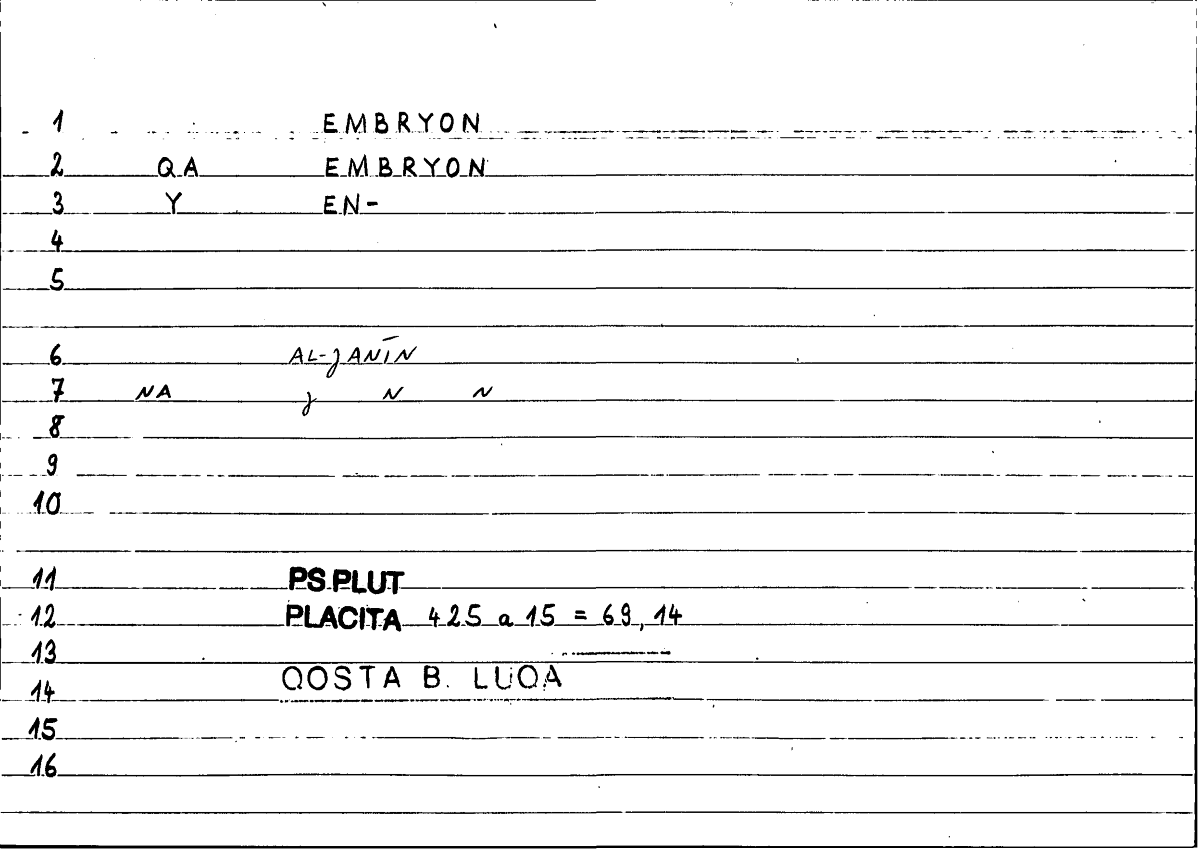 1 EMBRYON
2 QA EMBRYON
3 Y EN-
4
5
6 AL-JANĪN
7 NA J N N
8
9
10
11 PS.PLUT
12 PLACITA 425 a 15 = 69,14
13
14 QOSTA B. LUQA
15
16